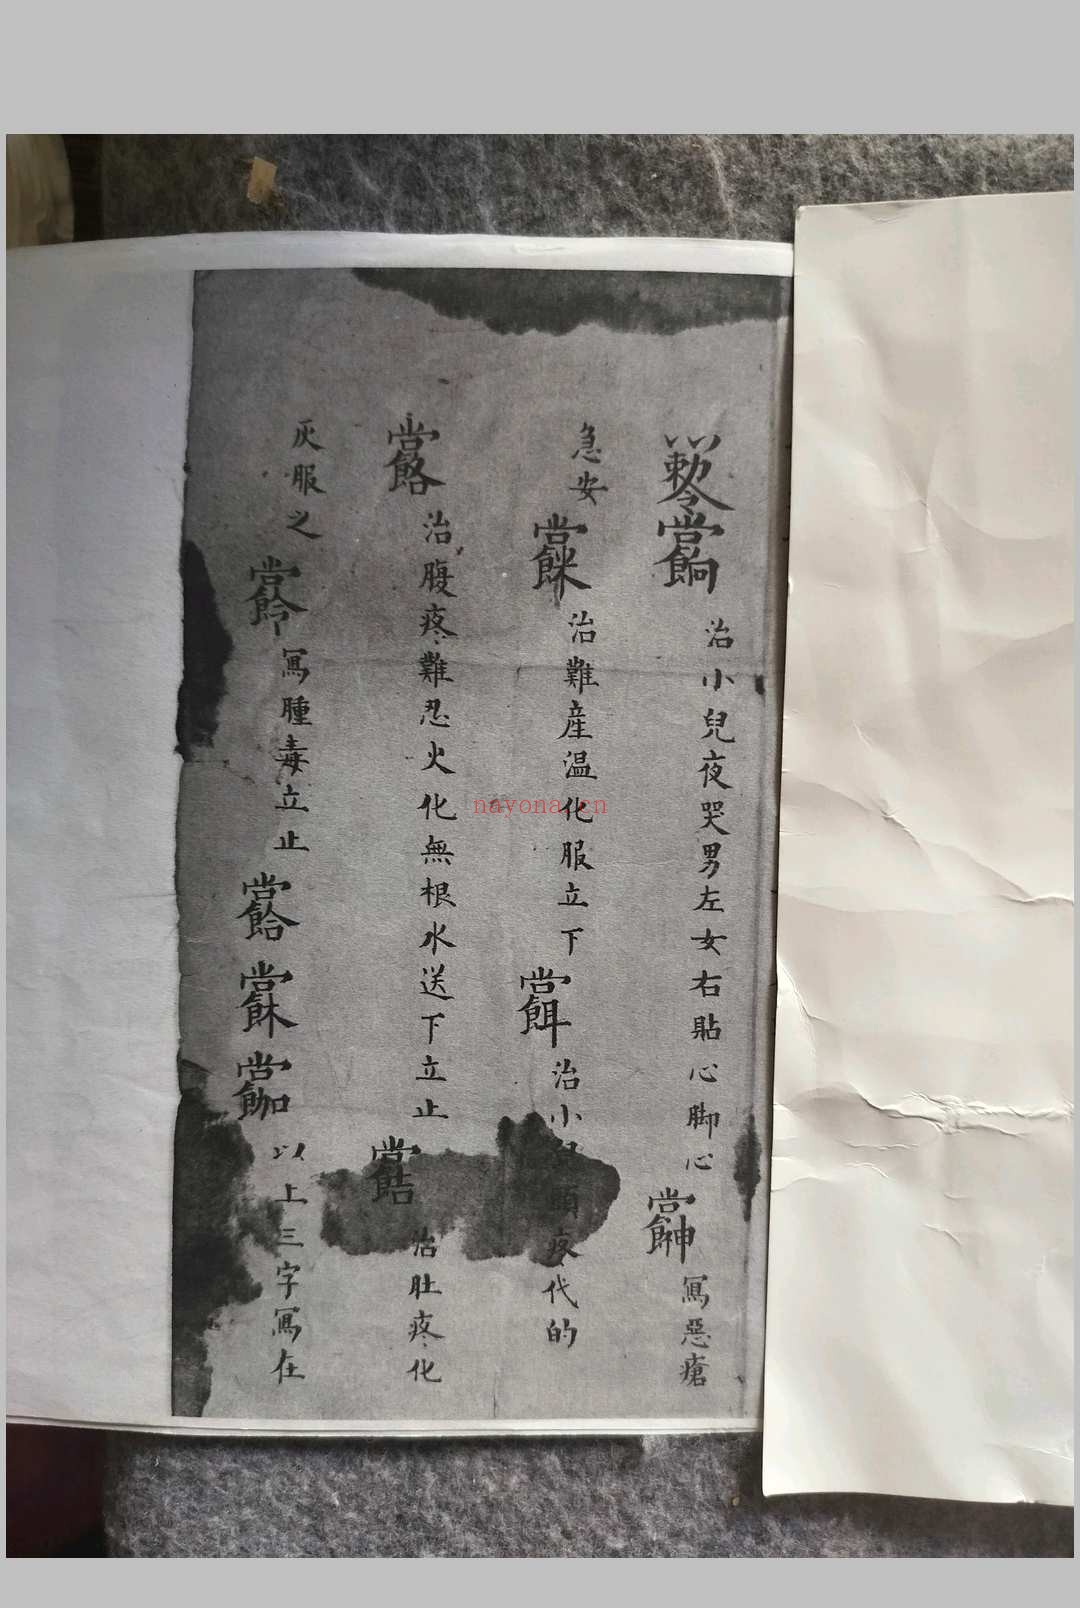 敕令 治小兒夜哭男左女右貼心脚心 寫惡瘡
急安 治難産温化服立下 治小兒頭疼代的
治腹疼難忍火化無根水送下立止 治肚疼化
灰服之 寫腫毒立止 以上三字寫在
nayona.cn